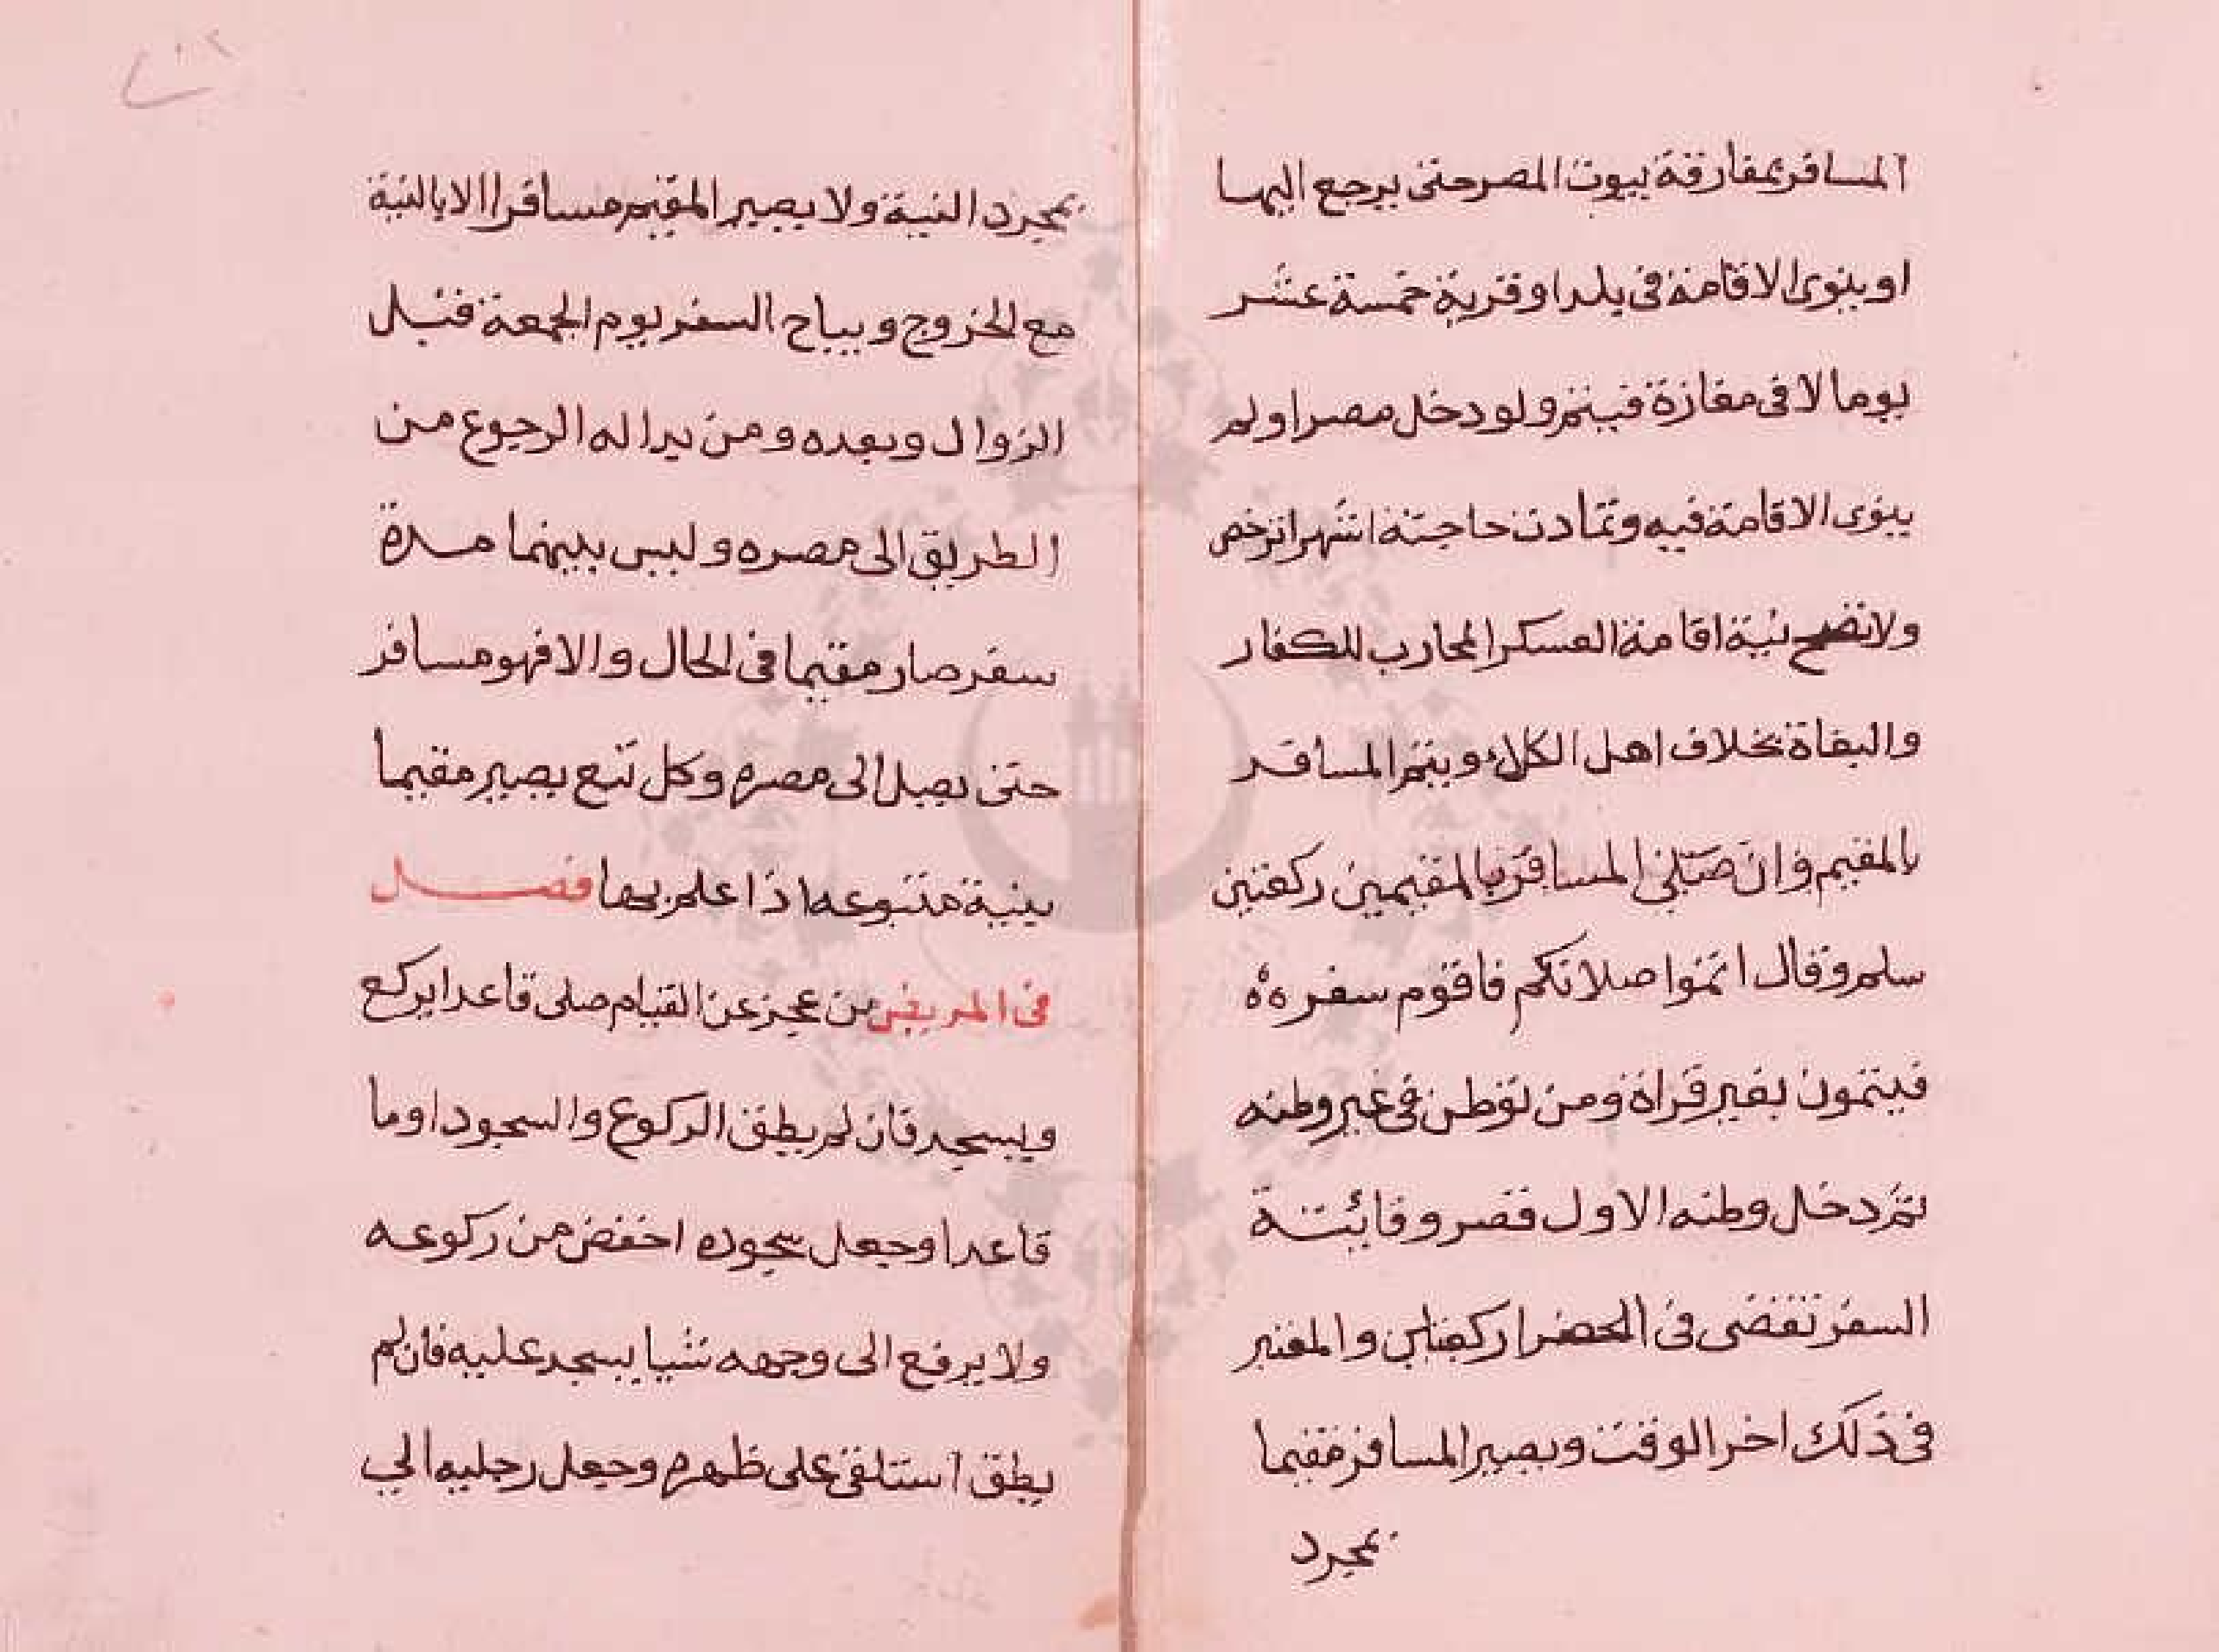 المسافر بمفارقة بيوت المصر حتى يرجع اليها
او ينوى الاقامة فى بلد او قرية خمسة عشر
يوما لا فى مفازة فيتم ولو دخل مصرا ولم
ينوى الاقامة فيه وتمادت حاجته اشهرا ترخص
ولا تصح نية اقامة العسكر المحارب للكفار
والبغاة بخلاف اهل الكلاء ويتم المسافر
بالمقيم وان صلى المسافر بالمقيمين ركعتين
سلم وقال اتموا صلاتكم فا قوم سفر
فيتمون بغير قراة ومن توطن فى غير وطنه
ثم دخل وطنه الاول قصر وفائتة
السفر تقضى فى الحضر ركعتين والمعتبر
فى ذلك اخر الوقت ويصير المسافر مقيما
بمجرد
بمجرد النية ولا يصير المقيم مسافرا الا بالنية
مع الخروج ويباح السفر يوم الجمعة قبل
الزوال وبعده ومن بدا له الرجوع من
الطريق الى مصره وليس بينهما مدة
سفر صار مقيما فى الحال والا فهو مسافر
حتى يصل الى مصره وكل تبع يصير مقيما
بنية متبوعه اذا علم بها فصل
فى المريض من عجز عن القيام صلى قاعدا يركع
ويسجد فان لم يطق الركوع والسجود اوما
قاعدا وجعل سجوده اخفض من ركوعه
ولا يرفع الى وجهه شيا يسجد عليه فان لم
يطق استلقى على ظهره وجعل رجليه الى